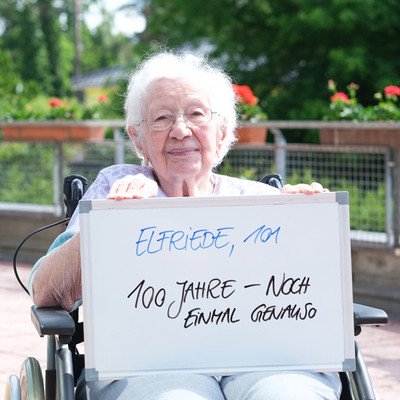 ELFRIEDE, 101
100 JAHRE – NOCH
EINMAL GENAUSO